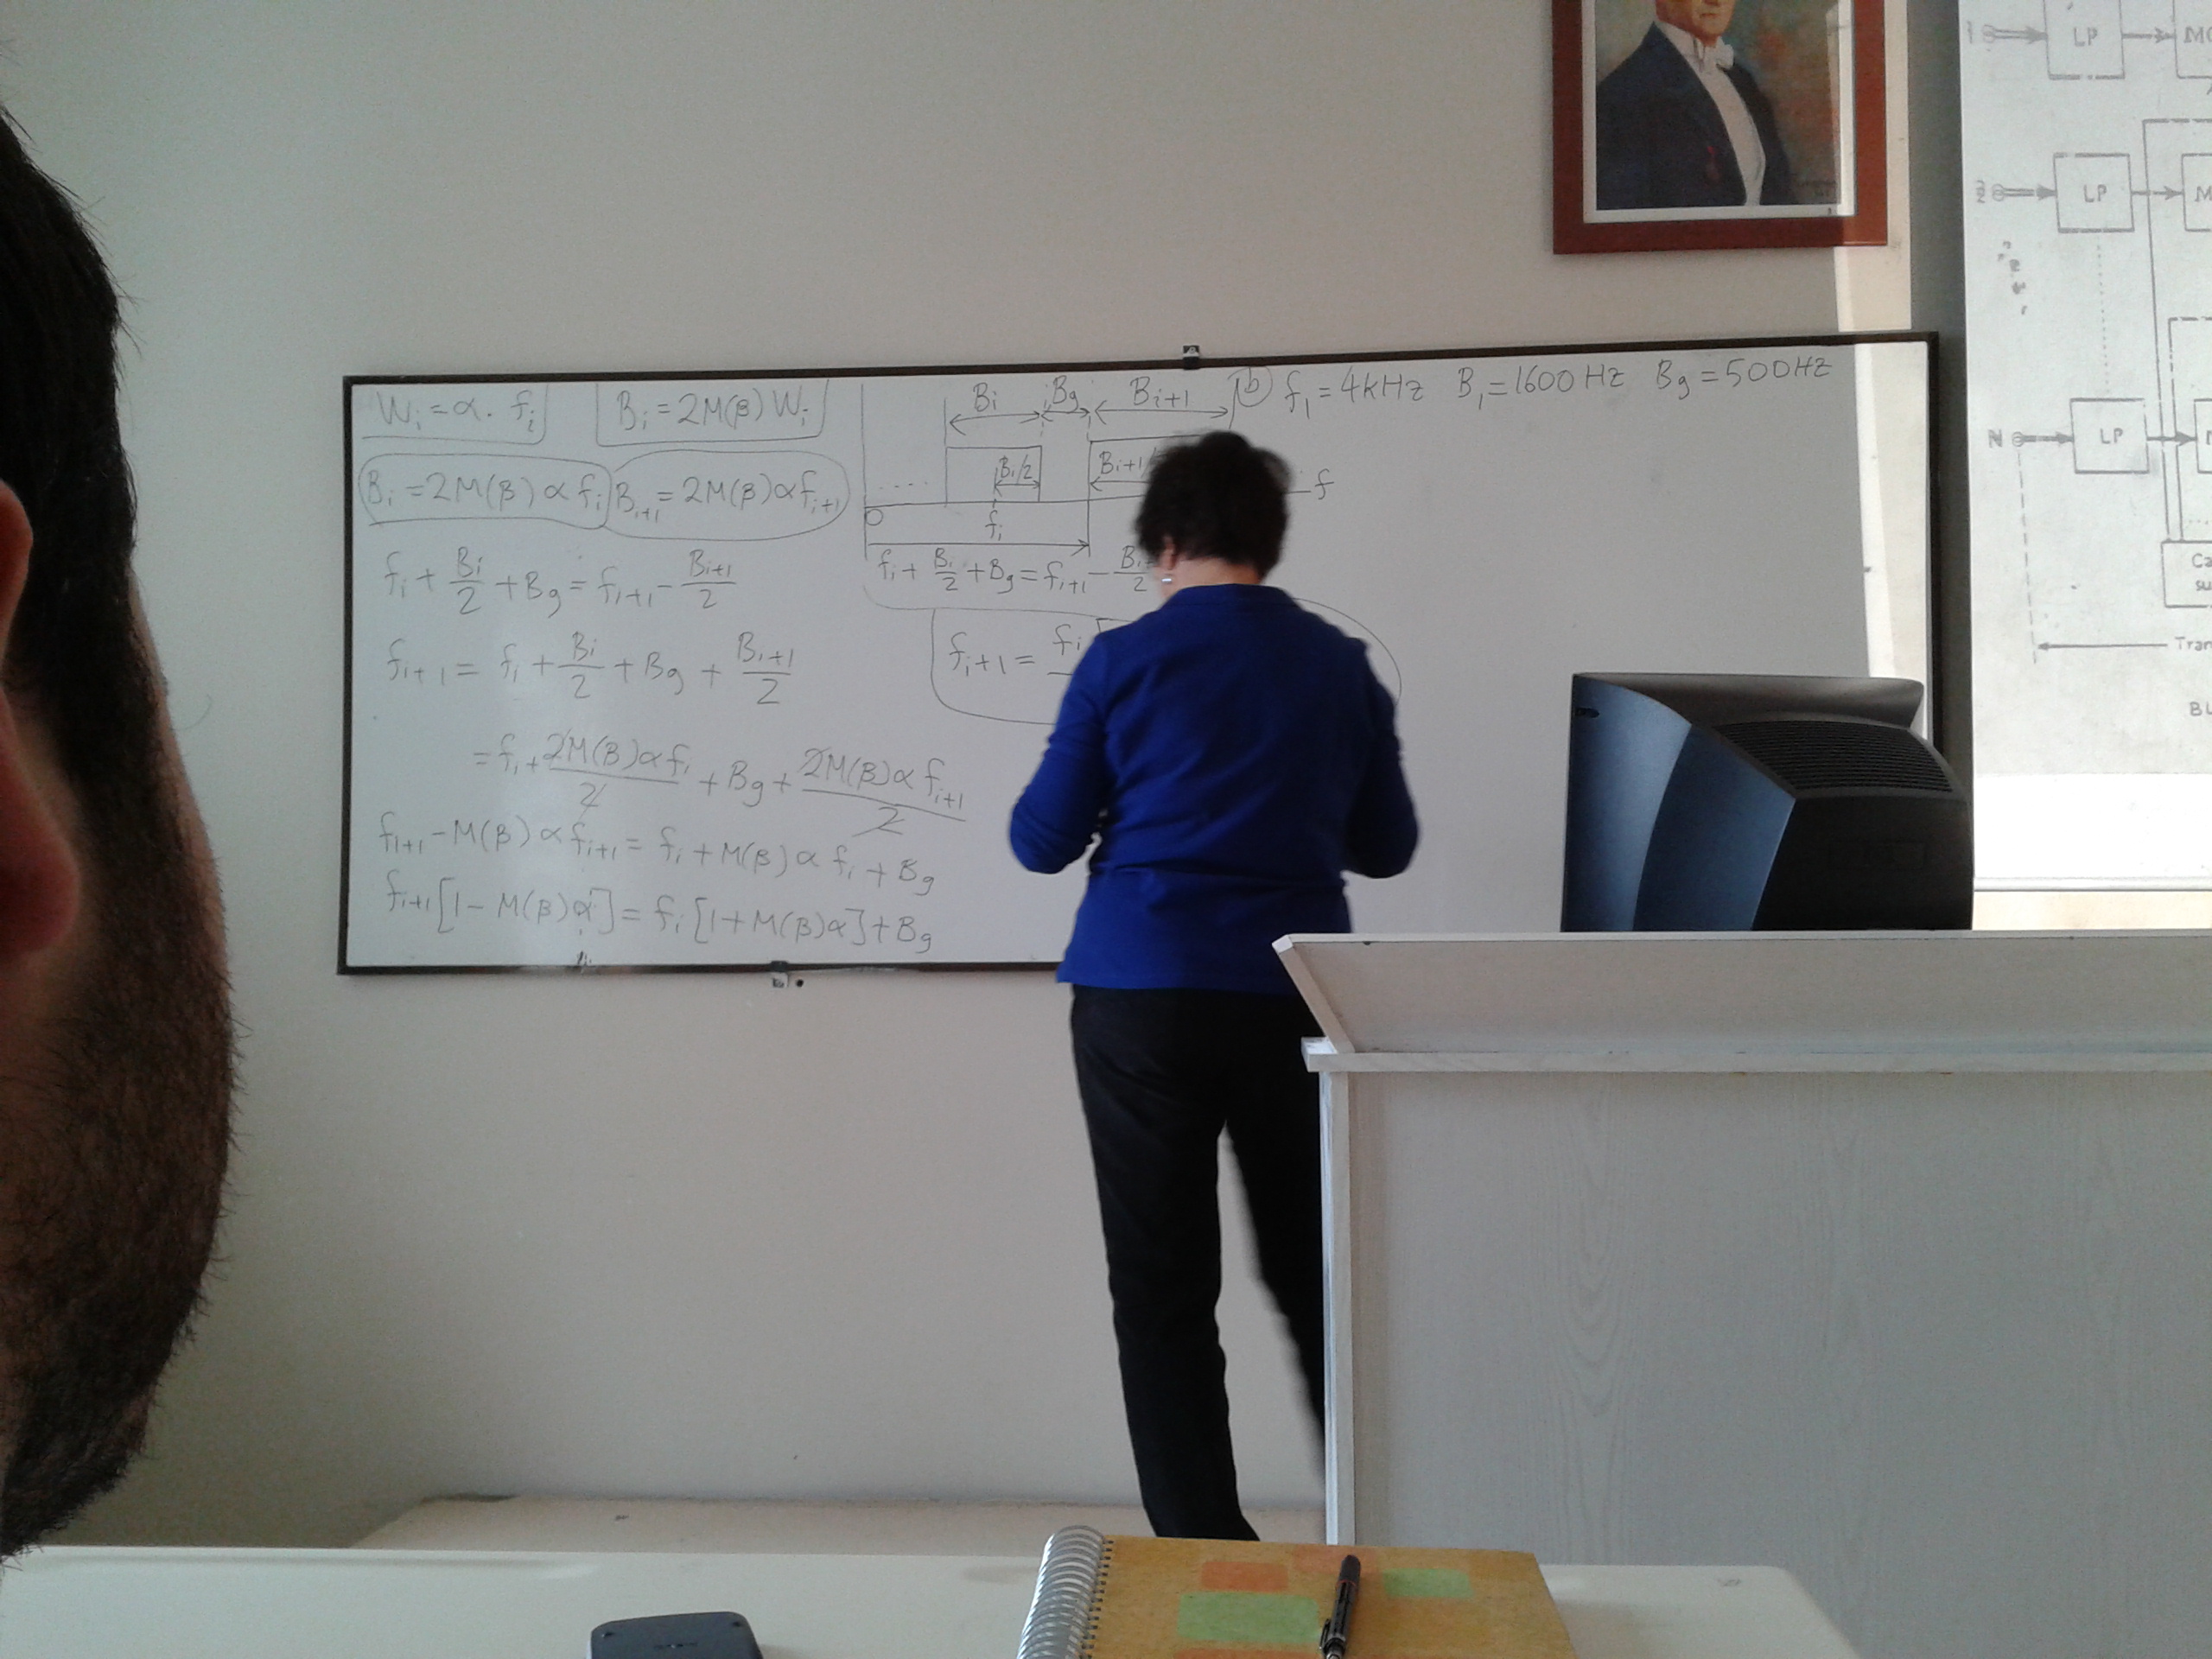 Wi = α. fi
Bi = 2M(β) Wi
Bi = 2M(β) α fi
Bi+1 = 2M(β) α fi+1
fi + Bi/2 + Bg = fi+1 - Bi+1/2
fi+1 = fi + Bi/2 + Bg + Bi+1/2
= fi + 2M(β) α fi/2 + Bg + 2M(β) α fi+1/2
fi+1 - M(β) α fi+1 = fi + M(β) α fi + Bg
fi+1 [1 - M(β) α] = fi [1 + M(β) α] + Bg
Bi Bg Bi+1
Bi/2 Bi+1
..... f
0 fi
fi + Bi/2 + Bg = fi+1 -
fi+1 = fi
b) f1 = 4kHz B1 = 1600 Hz Bg = 500Hz
1 LP
2 LP
N LP
Ca
su
Tran
BL